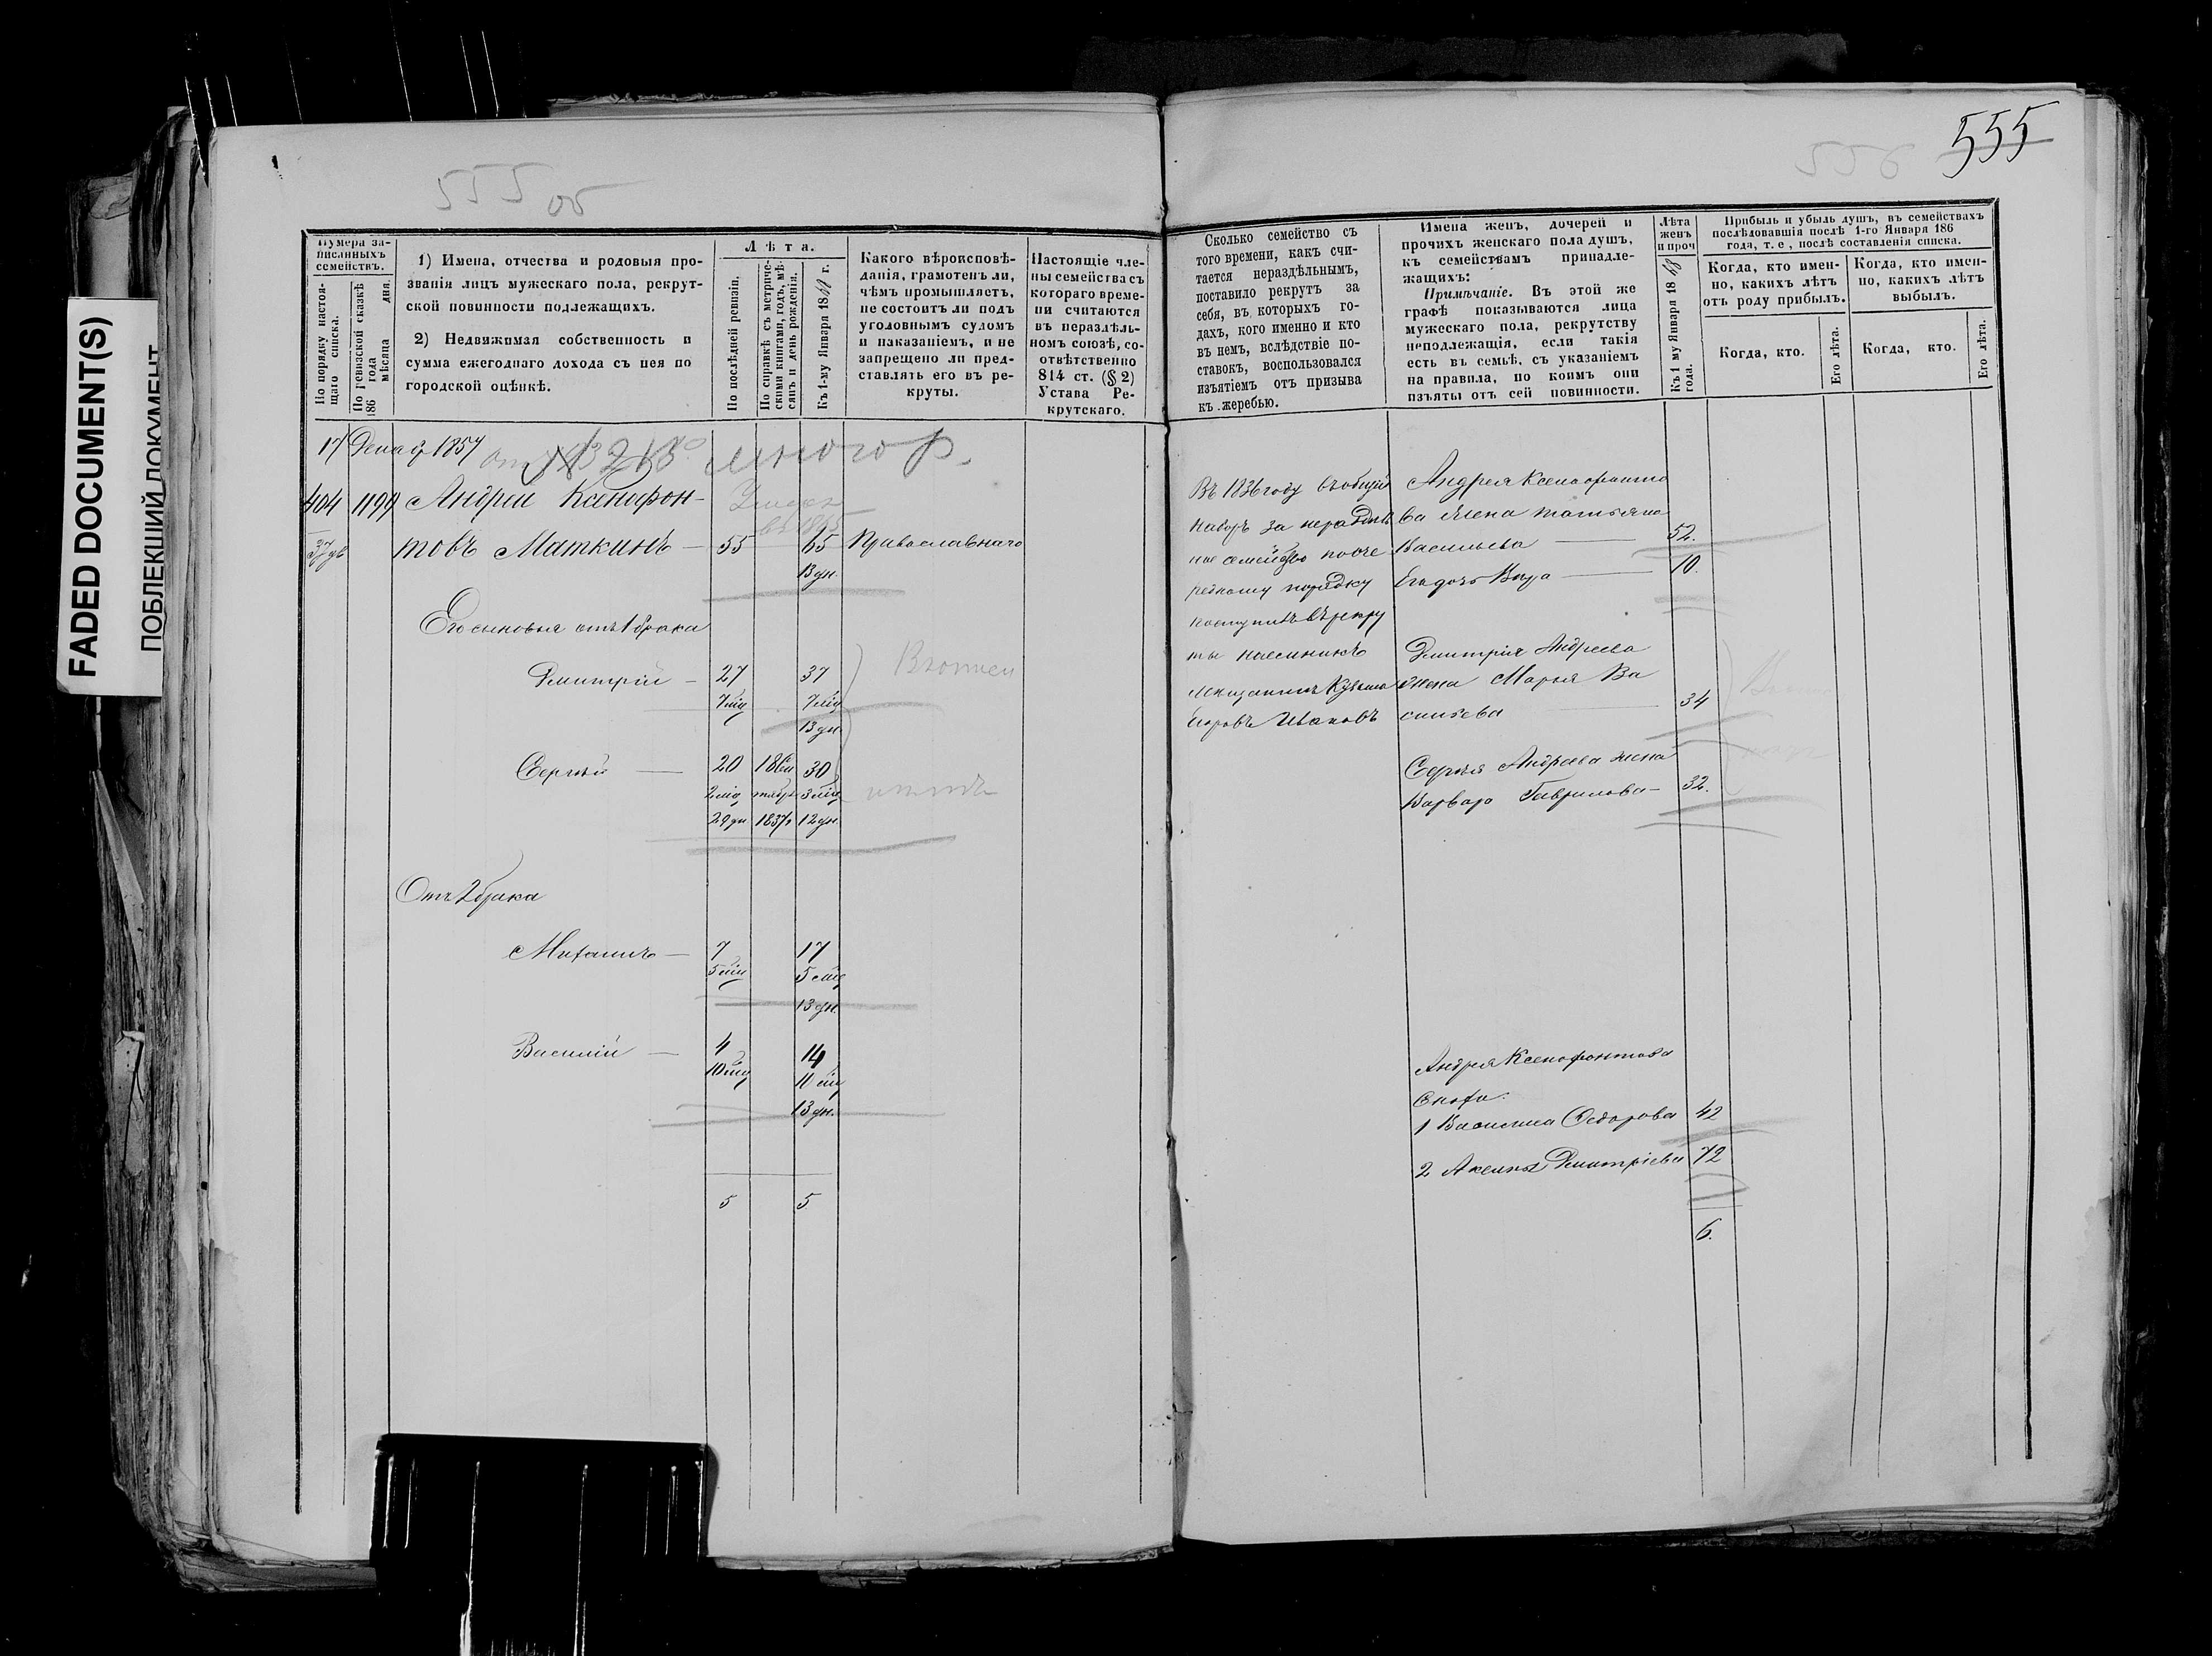 FADED DOCUMENT(S)
ПОБЛЕКШИЙ ДОКУМЕНТ
555 об
Нумера за-
писанныхъ
семействъ.
По порядку настоя-
щаго списка.
По ревизской сказкѣ
186 года
мѣсяца дня.
1) Имена, отчества и родовыя про-
званія лицъ мужескаго пола, рекрут-
ской повинности подлежащихъ.
2) Недвижимая собственность и
сумма ежегоднаго дохода съ нея по
городской оцѣнкѣ.
Лѣта.
По послѣдней ревизіи.
По справкѣ съ метриче-
скими книгами, годъ, мѣ-
сяцъ и день рожденія.
Къ 1-му Января 1868 г.
Какого вѣроисповѣ-
данія, грамотенъ ли,
чѣмъ промышляетъ,
не состоитъ ли подъ
уголовнымъ судомъ
и наказаніемъ, и не
запрещено ли пред-
ставлять его въ ре-
круты.
Настоящіе чле-
ны семейства съ
котораго време-
ни считаются
въ нераздѣль-
номъ союзѣ, со-
отвѣтственно
814 ст. (§ 2)
Устава Ре-
крутскаго.
17 Декаб. 1857
много р.
404 1199 Андрей Ксенофон-
товъ Маткинъ — 55 65 Православнаго
13 дн.
Его сыновья отъ 1 брака
Дмитрій — 27 37
7 мѣс 7 мѣс
13 дн.
Сергѣй — 20 18 Сен 30
2 мѣс тябр. 3 мѣс
29 дн 1837 г 12 дн.
Отъ 2 брака
Михаилъ — 7 17
5 мѣс 5 мѣс
13 дн.
Василій — 4 14
10 мѣс 10 мѣс
13 дн.
5 5
556 555
Сколько семейство съ
того времени, какъ счи-
тается нераздѣльнымъ,
поставило рекрутъ за
себя, въ которыхъ го-
дахъ, кого именно и кто
въ немъ, вслѣдствіе по-
ставокъ, воспользовался
изъятіемъ отъ призыва
къ жеребью.
Имена женъ, дочерей и
прочихъ женскаго пола душъ,
къ семействамъ принадле-
жащихъ:
Примѣчаніе. Въ этой же
графѣ показываются лица
мужескаго пола, рекрутству
неподлежащія, если такія
есть въ семьѣ, съ указаніемъ
на правила, по коимъ они
изъяты отъ сей повинности.
Лѣта
женъ
и проч
Къ 1 му Января 1868
года.
Прибыль и убыль душъ, въ семействахъ
послѣдовавшія послѣ 1-го Января 186
года, т. е, послѣ составленія списка.
Когда, кто имен-
но, какихъ лѣтъ
отъ роду прибылъ.
Когда, кто имен-
но, какихъ лѣтъ
выбылъ.
Когда, кто.
Его лѣта.
Когда, кто.
Его лѣта.
Въ 1836 году въ общій
наборъ за нераздѣль
ное семейство по оче
редному порядку
поступилъ въ рекру
ты наемникъ
мещанинъ Кузьма
Ивановъ
Андрея Ксенофонто
ва жена Татьяна
Васильева — 52.
Его дочь Вѣра — 10.
Дмитрія Андреева
жена Марья Ва
сильева — 34
Сергѣя Андреева жена
Варвара Гаврилова — 32.
Андрея Ксенофонтова
Снохи.
1 Василиса Федорова 42
2 Аксинья Дмитріева 72
6.